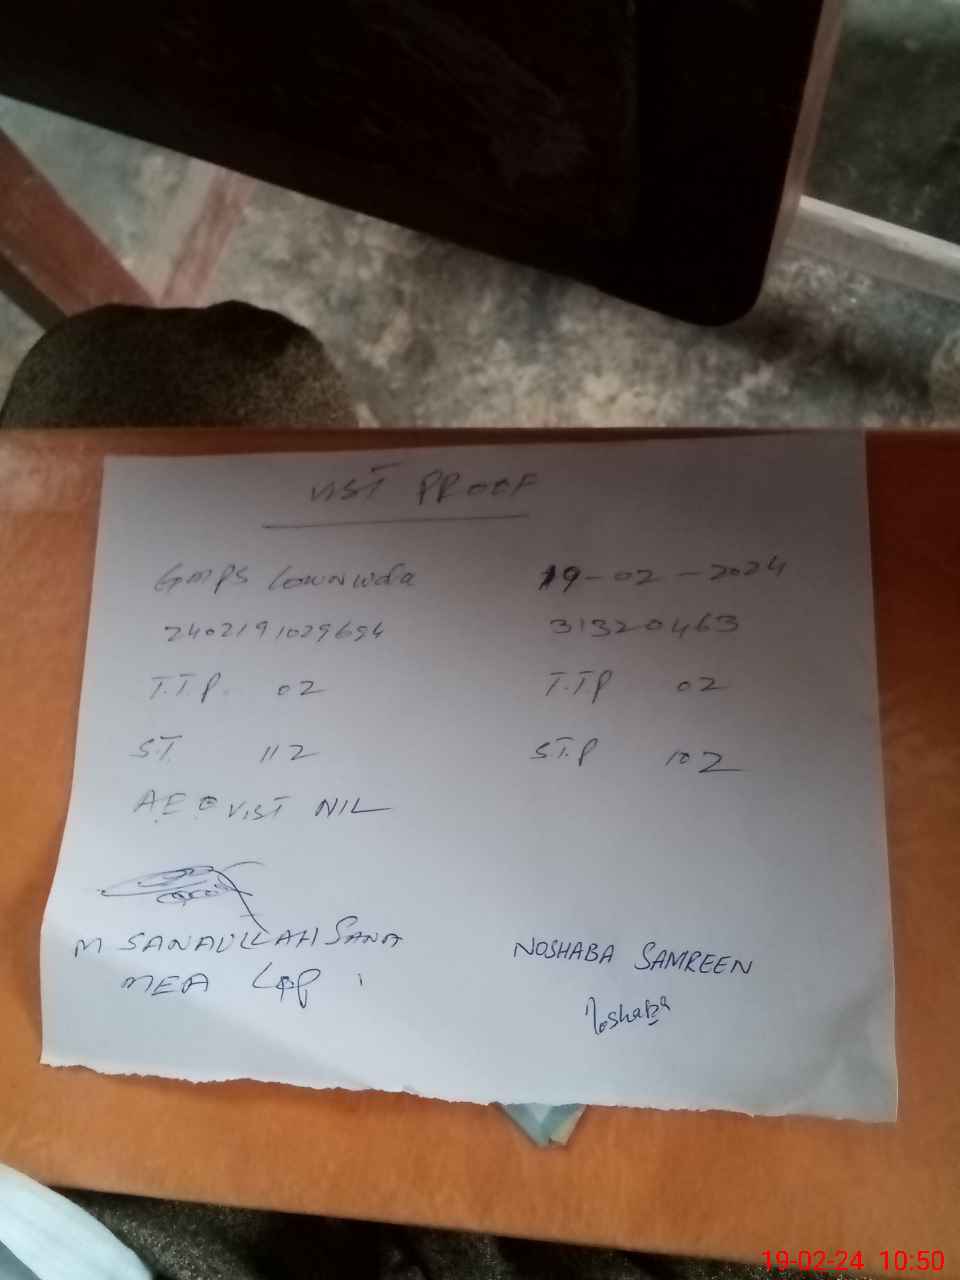 VIST PROOF
GMPS 19-02-2024
2402191029694 31320463
T.T.P. 02 T.TP 02
S.T. 112 S.T.P 102
A.E.O VIST NIL
M SANAULLAH SANA NOSHABA SAMREEN
MEA Noshaba
19-02-24 10:50